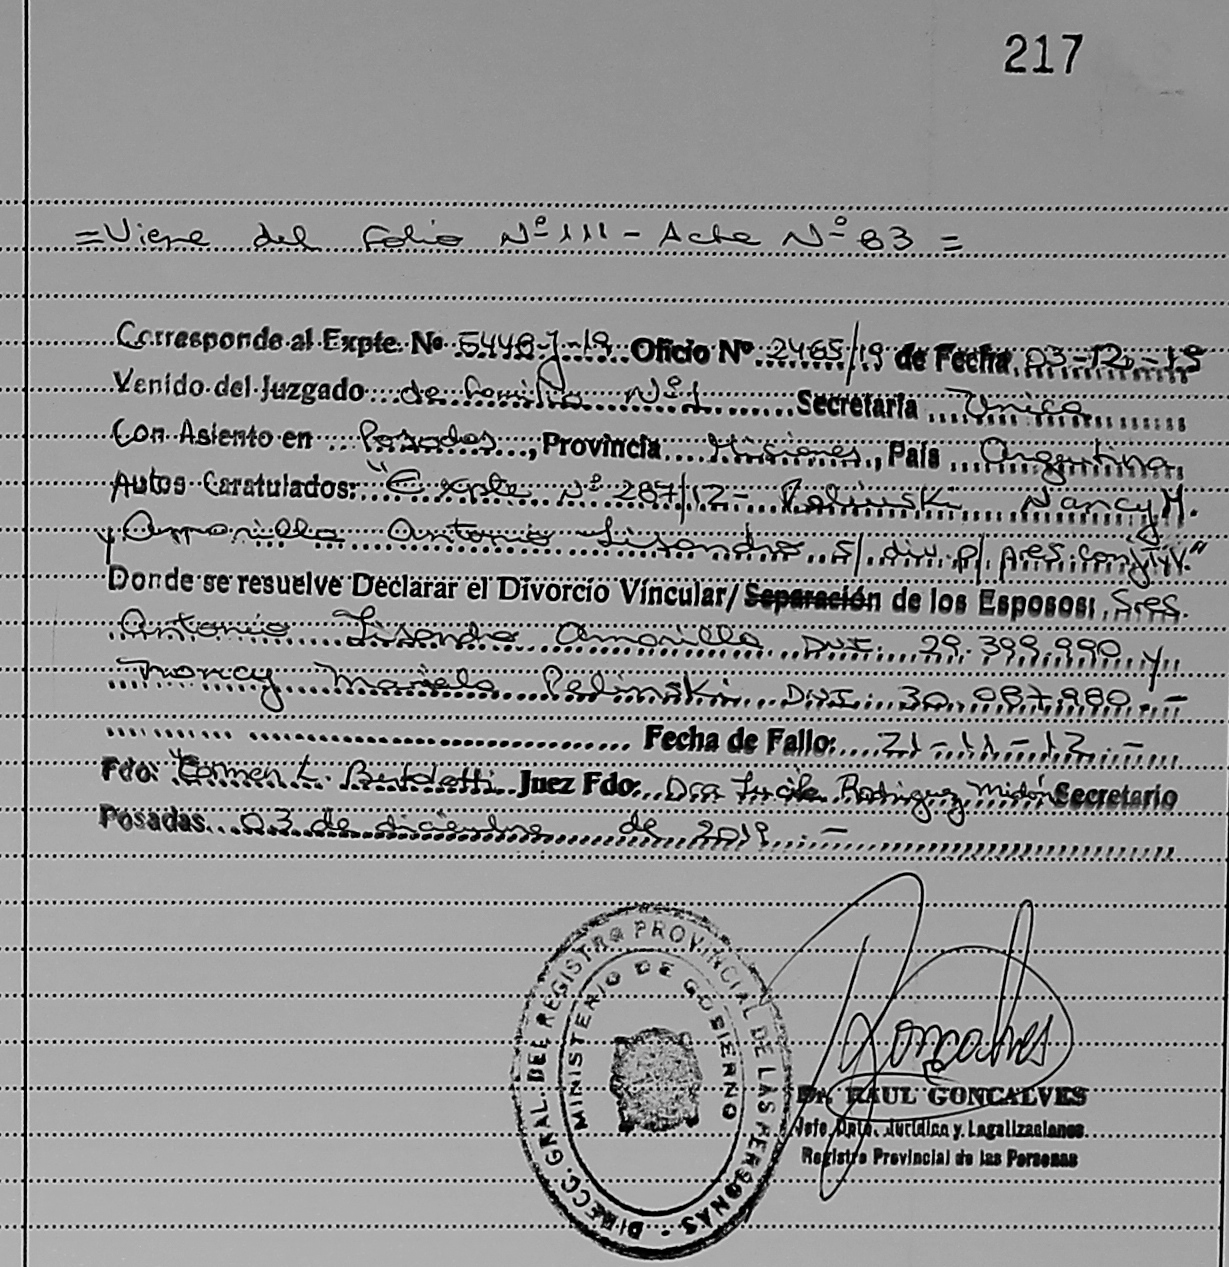 217
=Viene del Folio Nº 111 - Acta Nº 83 =
Corresponde al Expte. Nº 5448-J-19 Oficio Nº 2465/19 de Fecha 03-12-19
Venido del Juzgado de Familia Nº1 Secretaría Unica
Con Asiento en Posadas, Provincia Misiones, País Argentina
Autos Caratulados: "Expte Nº 287/12- Palinski Nancy M.
y Amarilla Antonio Lisandro s/ div. p/ pres. conj."
Donde se resuelve Declarar el Divorcio Vincular/ Separación de los Esposos: Sres.
Antonio Lisandro Amarilla DNI: 29.399.990 y
Nancy Mariela Palinski DNI: 30.087.980.-
Fecha de Fallo: 21-11-12.-
Fdo: Carmen L. Bertoletti Juez Fdo: Dra Lucila Rodriguez Midón Secretario
Posadas 03 de diciembre de 2019.-
DIRECC. GRAL. DEL REGISTRO PROVINCIAL DE LAS PERSONAS -
MINISTERIO DE GOBIERNO
Goncalves
Dr. RAUL GONCALVES
Jefe Dpto. Jurídico y Legalizaciones
Registro Provincial de las Personas